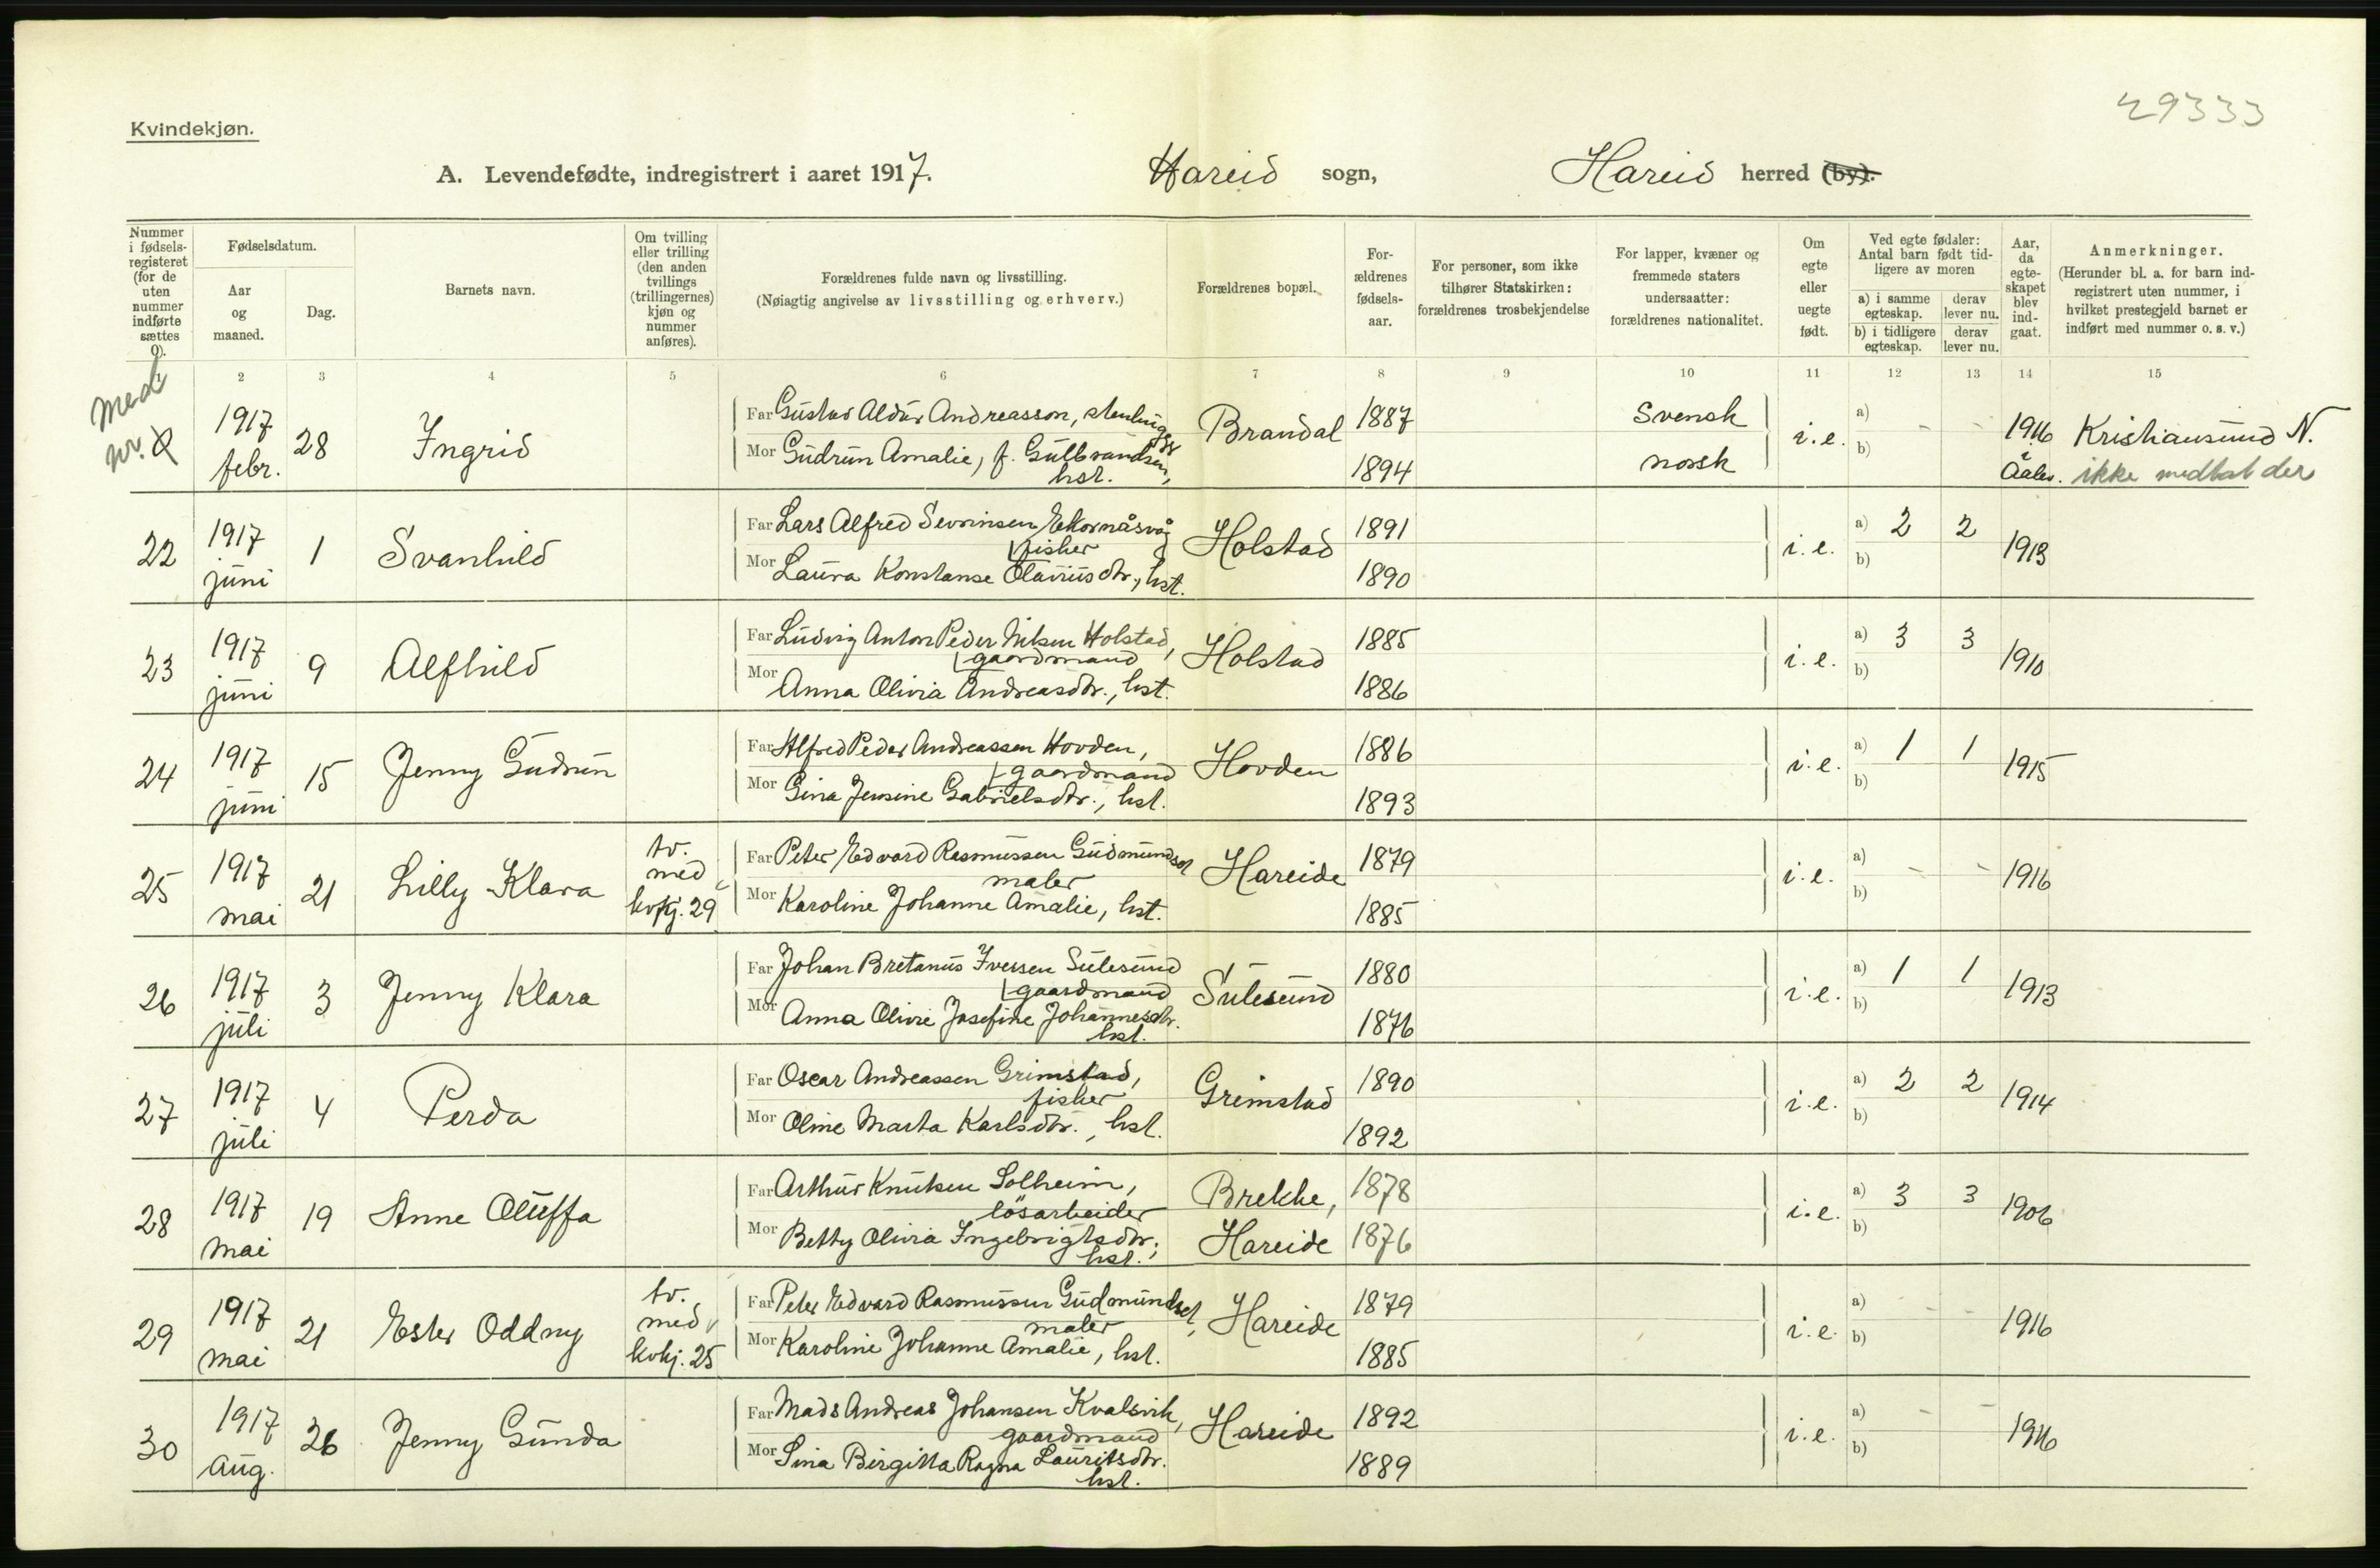 29333
Kvindekjøn.
A. Levendefødte, indregistrert i aaret 1917. Hareid sogn, Hareid herred (by).
Nummer i fødsels-registeret (for de uten nummer indførte sættes 0).
Fødselsdatum.
Aar og maaned.
Dag.
Barnets navn.
Om tvilling eller trilling (den anden tvillings (trillingernes) kjøn og nummer anføres).
Forældrenes fulde navn og livsstilling.
(Nøiagtig angivelse av livsstilling og erhverv.)
Forældrenes bopæl.
For-ældrenes fødsels-aar.
For personer, som ikke tilhører Statskirken: forældrenes trosbekjendelse
For lapper, kvæner og fremmede staters undersaatter: forældrenes nationalitet.
Om egte eller uegte født.
Ved egte fødsler: Antal barn født tid-ligere av moren
a) i samme egteskap. derav lever nu.
b) i tidligere egteskap. derav lever nu.
Aar, da egte-skapet blev ind-gaat.
Anmerkninger.
(Herunder bl. a. for barn ind-registrert uten nummer, i hvilket prestegjeld barnet er indført med nummer o. s. v.)
1 2 3 4 5 6 7 8 9 10 11 12 13 14 15
Med nr.
1917 febr. 28 Ingrid
Far Gustav Aldur Andreasson, stenhugger Brandal 1887 Svensk
Mor Gudrun Amalie, f. Gulbrandsen, hst. 1894 norsk
i.e. a) - - b) 1916 Aales. Kristiansund N. ikke medtat der
22 1917 juni 1 Svanhild
Far Lars Alfred Severinsen Ekornåsvåg fisker Holstad 1891
Mor Laura Konstanse Olaviusdtr., hst. 1890
i.e. a) 2 2 b) 1913
23 1917 juni 9 Alfhild
Far Ludvig Anton Peder Nilsen Holstad, gaardmand Holstad 1885
Mor Anna Olivia Andreasdtr., hst. 1886
i.e. a) 3 3 b) 1910
24 1917 juni 15 Jenny Gudrun
Far Alfred Peder Andreassen Hovden, gaardmand Hovden 1886
Mor Gina Jensine Gabrielsdtr., hst. 1893
i.e. a) 1 1 b) 1915
25 1917 mai 21 Lilly Klara tv. med kvkj. 29
Far Peter Edvard Rasmussen Gudmundset maler Hareide 1879
Mor Karoline Johanne Amalie, hst. 1885
i.e. a) - - b) 1916
26 1917 juli 3 Jenny Klara
Far Johan Bretanus Iversen Sulesund gaardmand Sulesund 1880
Mor Anna Olivie Josefine Johannesdtr. hst. 1876
i.e. a) 1 1 b) 1913
27 1917 juli 4 Perda
Far Oscar Andreassen Grimstad, fisker Grimstad 1890
Mor Oline Marta Karlsdtr., hst. 1892
i.e. a) 2 2 b) 1914
28 1917 mai 19 Anne Oluffa
Far Arthur Knutsen Solheim, lösarbeider Brekke, 1878
Mor Betty Olivia Ingebrigtsdtr., hst. Hareide 1876
i.e. a) 3 3 b) 1906
29 1917 mai 21 Ester Oddny tv. med kvkj. 25
Far Peter Edvard Rasmussen Gudmundset, maler Hareide 1879
Mor Karoline Johanne Amalie, hst. 1885
i.e. a) - - b) 1916
30 1917 aug. 26 Jenny Gunda
Far Mads Andreas Johansen Kvalsvik, gaardmand Hareide 1892
Mor Sina Birgitta Ragna Lauritsdtr. hst. 1889
i.e. a) - - b) 1916